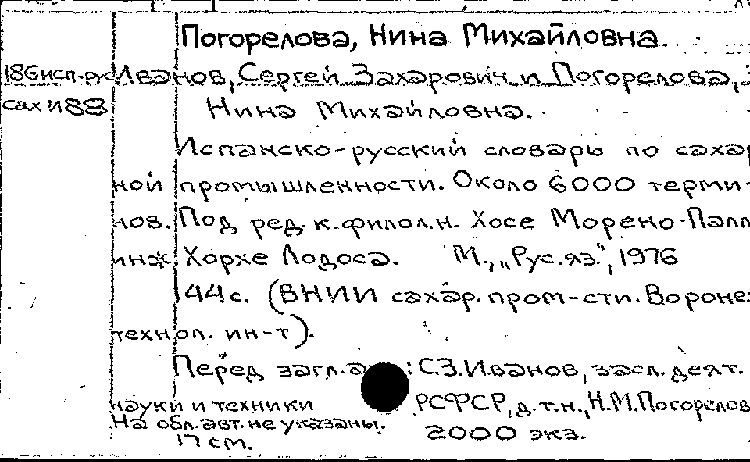 Погорелова, Нина Михайловна.
18Gисп-рус Иванов, Сергей Захарович и Погорелова,
сах и88 Нина Михайловна.
Испанско-русский словарь по сахар
ной промышленности. Около 6000 терми-
нов. Под ред. к.филол.н. Хосе Морено-Палл
инж. Хорхе Лодоса. М., „Рус.яз.", 1976
144с. (ВНИИ сахар.пром-сти. Воронеж
технол. ин-т).
Перед загл.а : С.З.Иванов, засл. деят.
науки и техники РСФСР, д.т.н., Н.М.Погорелов
На обл. авт. не указаны. 2000 экз.
17 см.